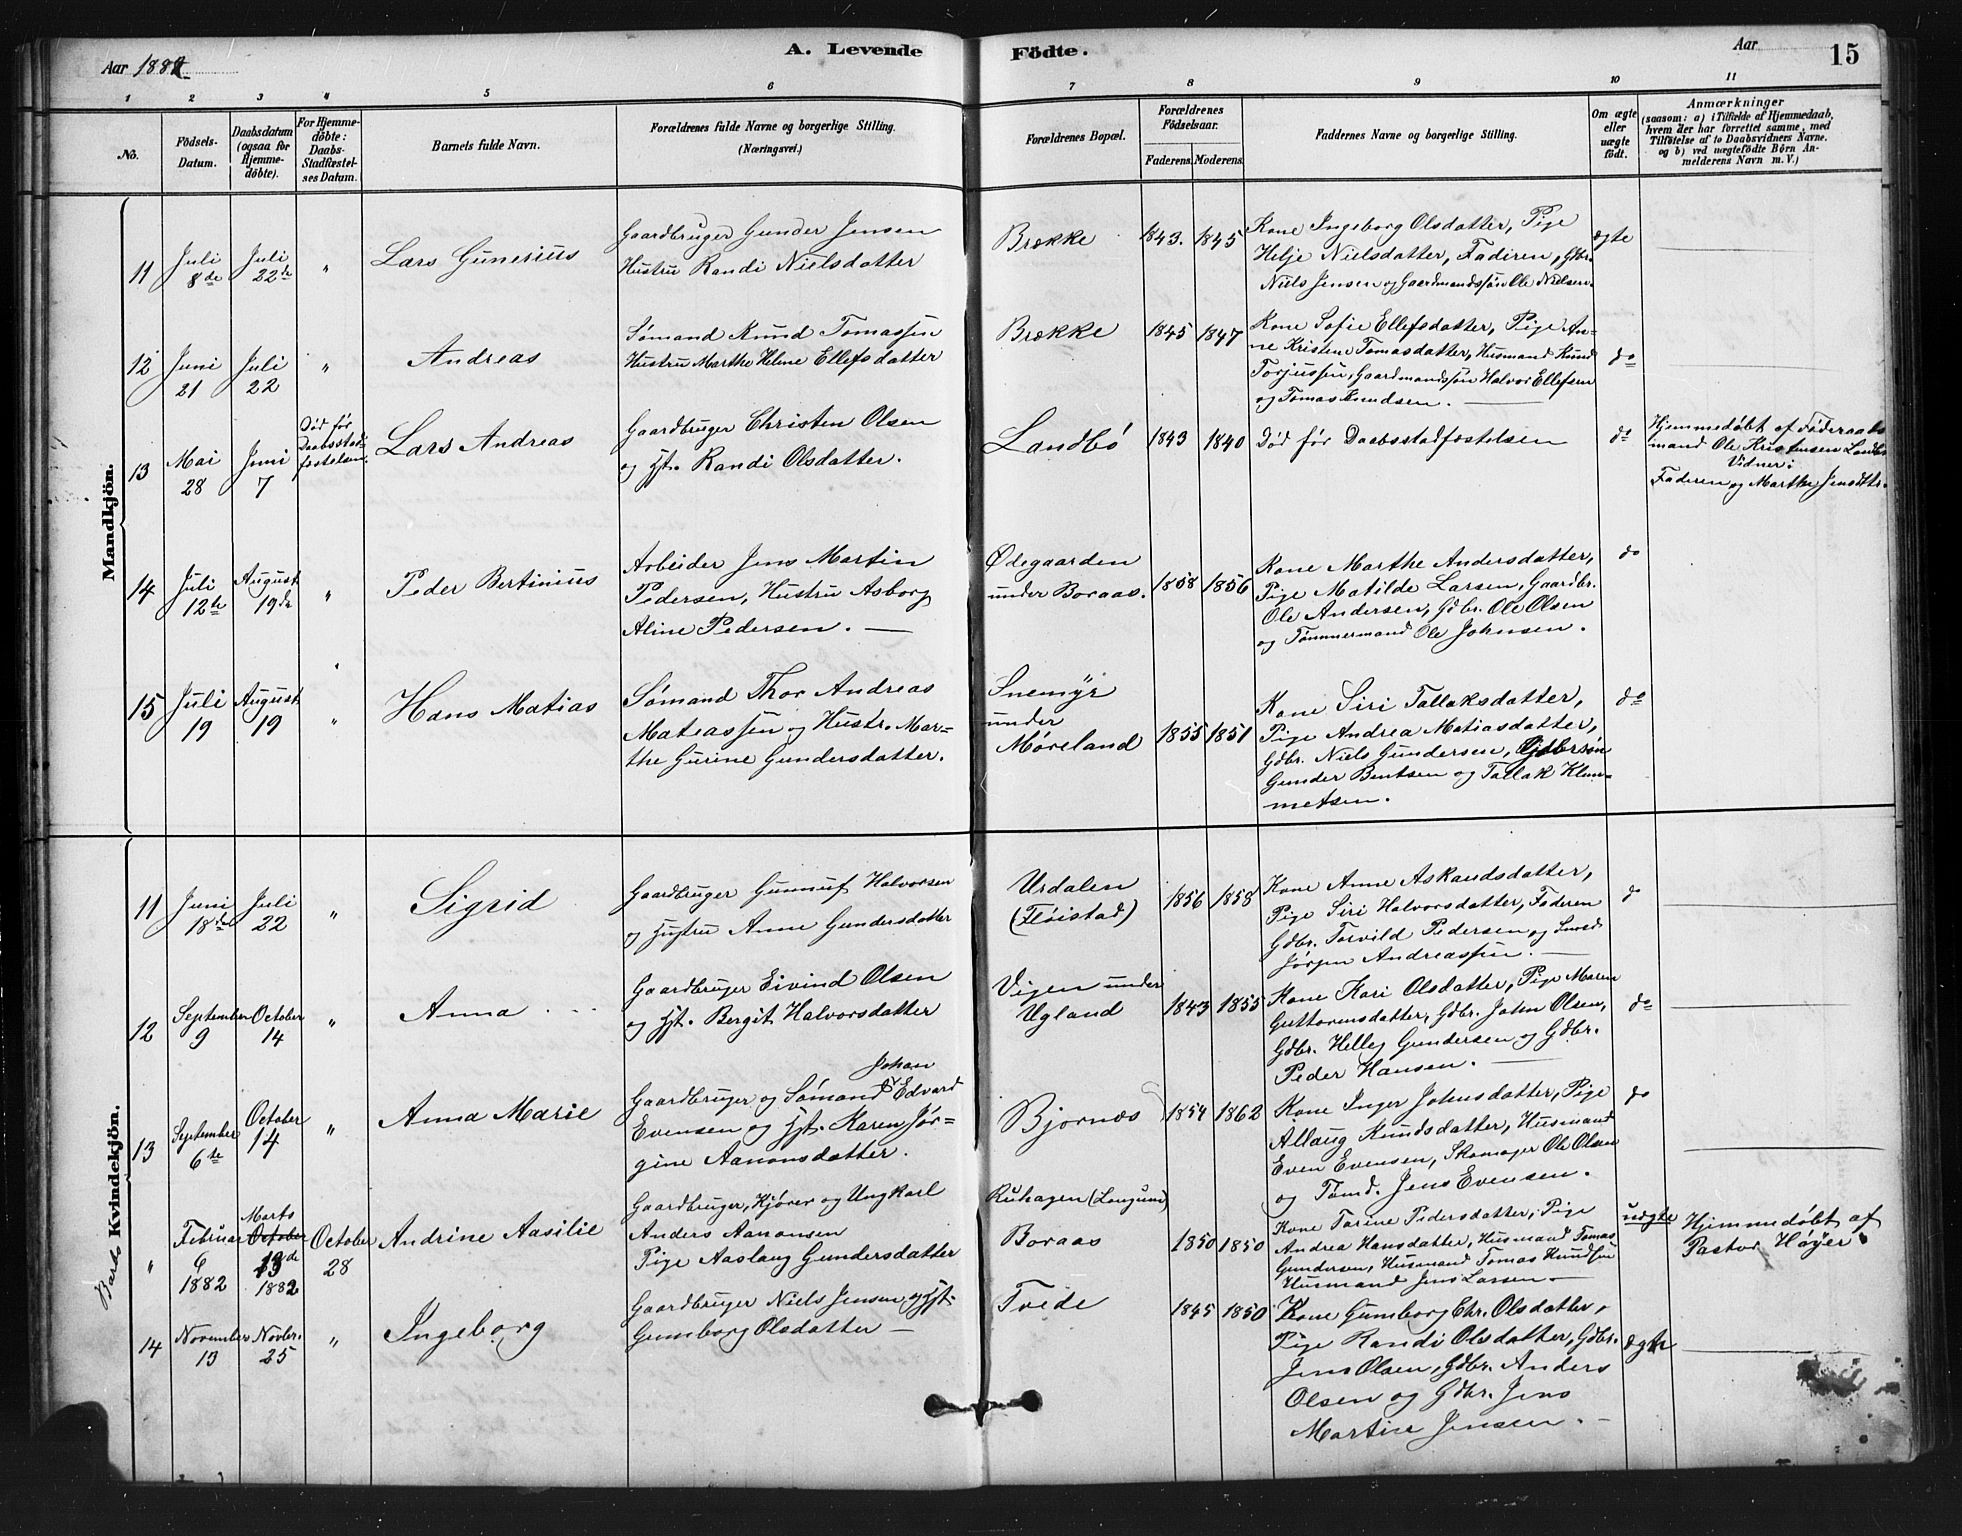 A. Levende Födte.
Aar 1882
Aar 15
1 2 3 4 5 6 7 8 9 10 11
No.
Födsels-Datum.
Daabsdatum (ogsaa for Hjemmedöbte).
For Hjemmedöbte: Daabs-Stadfæstelses Datum.
Barnets fulde Navn.
Forældrenes fulde Navne og borgerlige Stilling. (Næringsvei.)
Forældrenes Bopæl.
Forældrenes Födselsaar.
Faderens. Moderens.
Faddernes Navne og borgerlige Stilling.
Om ægte eller uægte födt.
Anmærkninger
(saasom: a) i Tilfælde af Hjemmedaab,
hvem der har forrettet samme, med
Tilföielse af to Daabsvidners Navne.
og b) ved uægtefödte Börn An-
melderens Navn m. V.)
Mandkjön.
11 Juli 8de Juli 22de " Lars Gunerius
Gaardbruger Gunder Jensen
Hustru Randi Nielsdatter
Brække 1843. 1845
Kone Ingeborg Olsdatter, Pige
Helje Nielsdatter, Faderen, Gbr.
Niels Jensen og Gaardmandssøn Ole Nielsen.
ægte
12 Juni 21 Juli 22 " Andreas
Sømand Knud Tomassen
Hustru Marthe Helene Ellefsdatter
Brække 1845 1847
Kone Sofie Ellefsdatter, Pige An-
ne Kristen Tomasdatter, Husmand Knud
Torjussen, Gaardmandssøn Halvor Ellefsen
og Tomas Knudsen.
do
13 Mai 28 Juni 7
Død før
Daabsstad-
festelsen.
Lars Andreas
Gaardbruger Christen Olsen
og Hst. Randi Olsdatter.
Landbö 1843 1840
Død før Daabsstadfæstelsen
do
Hjemmedøbt af Föderaads
mand Ole Kristensen Landbö
Vidner:
Faderen og Marthe Jensdttr.
14 Juli 12te August 19de " Peder Bertinius
Arbeider Jens Martin
Pedersen, Hustru Asborg
Aline Pedersen.
Ødegaarden
under Boraas. 1858 1856
Kone Marthe Andersdatter,
Pige Matilde Larsen, Gaardbr.
Ole Andersen, Gdbr. Ole Olsen
og Tømmermand Ole Johnsen.
do
15 Juli 19 August 19 " Hans Matias
Sømand Thor Andreas
Matiassen og Hustr. Mar-
the Gurine Gundersdatter.
Snemyr
under
Møreland 1855 1851
Kone Siri Tallaksdatter,
Pige Andrea Matiasdatter,
Gdbr. Niels Gundersen, Gdbrsøn
Gunder Bentsen og Tallak Klem-
metsen.
do
Kvindekjön.
11 Juni 18de Juli 22 " Sigrid
Gaardbruger Gunnuf Halvorsen
og Hustru Anne Gundersdatter
Urdalen
(Fløistad) 1856 1858
Kone Anne Askandsdatter,
Pige Siri Halvorsdatter, Faderen
Gdbr. Torvild Pedersen og
Jørgen Andreassen.
do
12 September 9 October 14 " Anna
Gaardbruger Eivind Olsen
og Hst. Bergit Halvorsdatter
Vigen under
Ugland 1843 1855
Kone Kari Olsdatter, Pige Maren
Guttormsdatter, Gdbr. John Olsen,
Gdbr. Hellej Gundersen og Gdbr.
Peder Hansen.
do
13 September 6te October 14 " Anna Marie
Johan
Gaardbruger og Sømand Edvard
Evensen og Hst. Karen Jør-
gine Aanonsdatter.
Bjornæs 1854 1862
Kone Inger Johnsdatter, Pige
Allaug Knudsdatter, Husmand
Even Evensen, Skomager Ole Olsen
og Tømd. Jens Evensen.
do
" Februar 6 1882 Marts October 13de 1882 October 28 Andrine Aasilie
Gaardbruger, Kjører og Ungkarl
Anders Aanonsen
Pige Aaslaug Gundersdatter
Ruhagen (Longum)
Boraas 1850 1850
Kone Torine Pedersdatter, Pige
Andrea Hansdatter, Husmand Tomas
Gundersen, Husmand Tomas Knudsen
Husmand Jens Larsen
uægte
Hjemmedøbt af
Pastor Høyer
14 November 13 Novbr. 25 " Ingeborg
Gaardbruger Niels Jensen og Hst.
Gunborg Olsdatter
Tvede 1845 1850
Kone Gunborg Chr. Olsdatter,
Pige Randi Olsdatter, Gdbr.
Jens Olsen, Gdbr. Anders
Olsen og Gdbr. Jens
Martin Jensen.
ægte